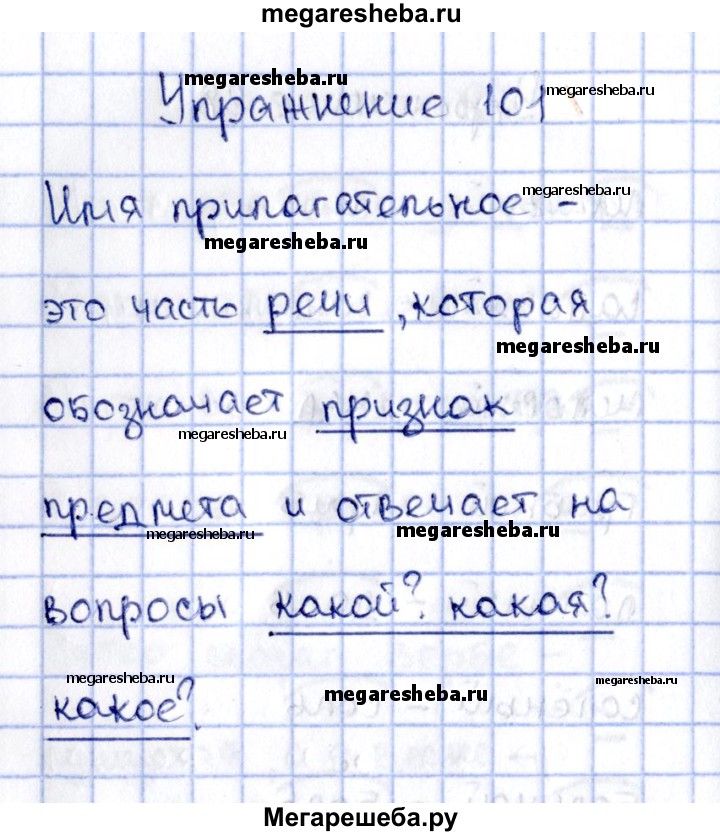 megaresheba.ru
megaresheba.ru
megaresheba.ru
Упражнение 101
megaresheba.ru
Имя прилагательное -
megaresheba.ru
это часть речи, которая
megaresheba.ru
обозначает признак
megaresheba.ru
предмета и отвечает на
megaresheba.ru
megaresheba.ru
вопросы какой? какая?
megaresheba.ru
megaresheba.ru
megaresheba.ru
какое?.
Мегарешеба.ру